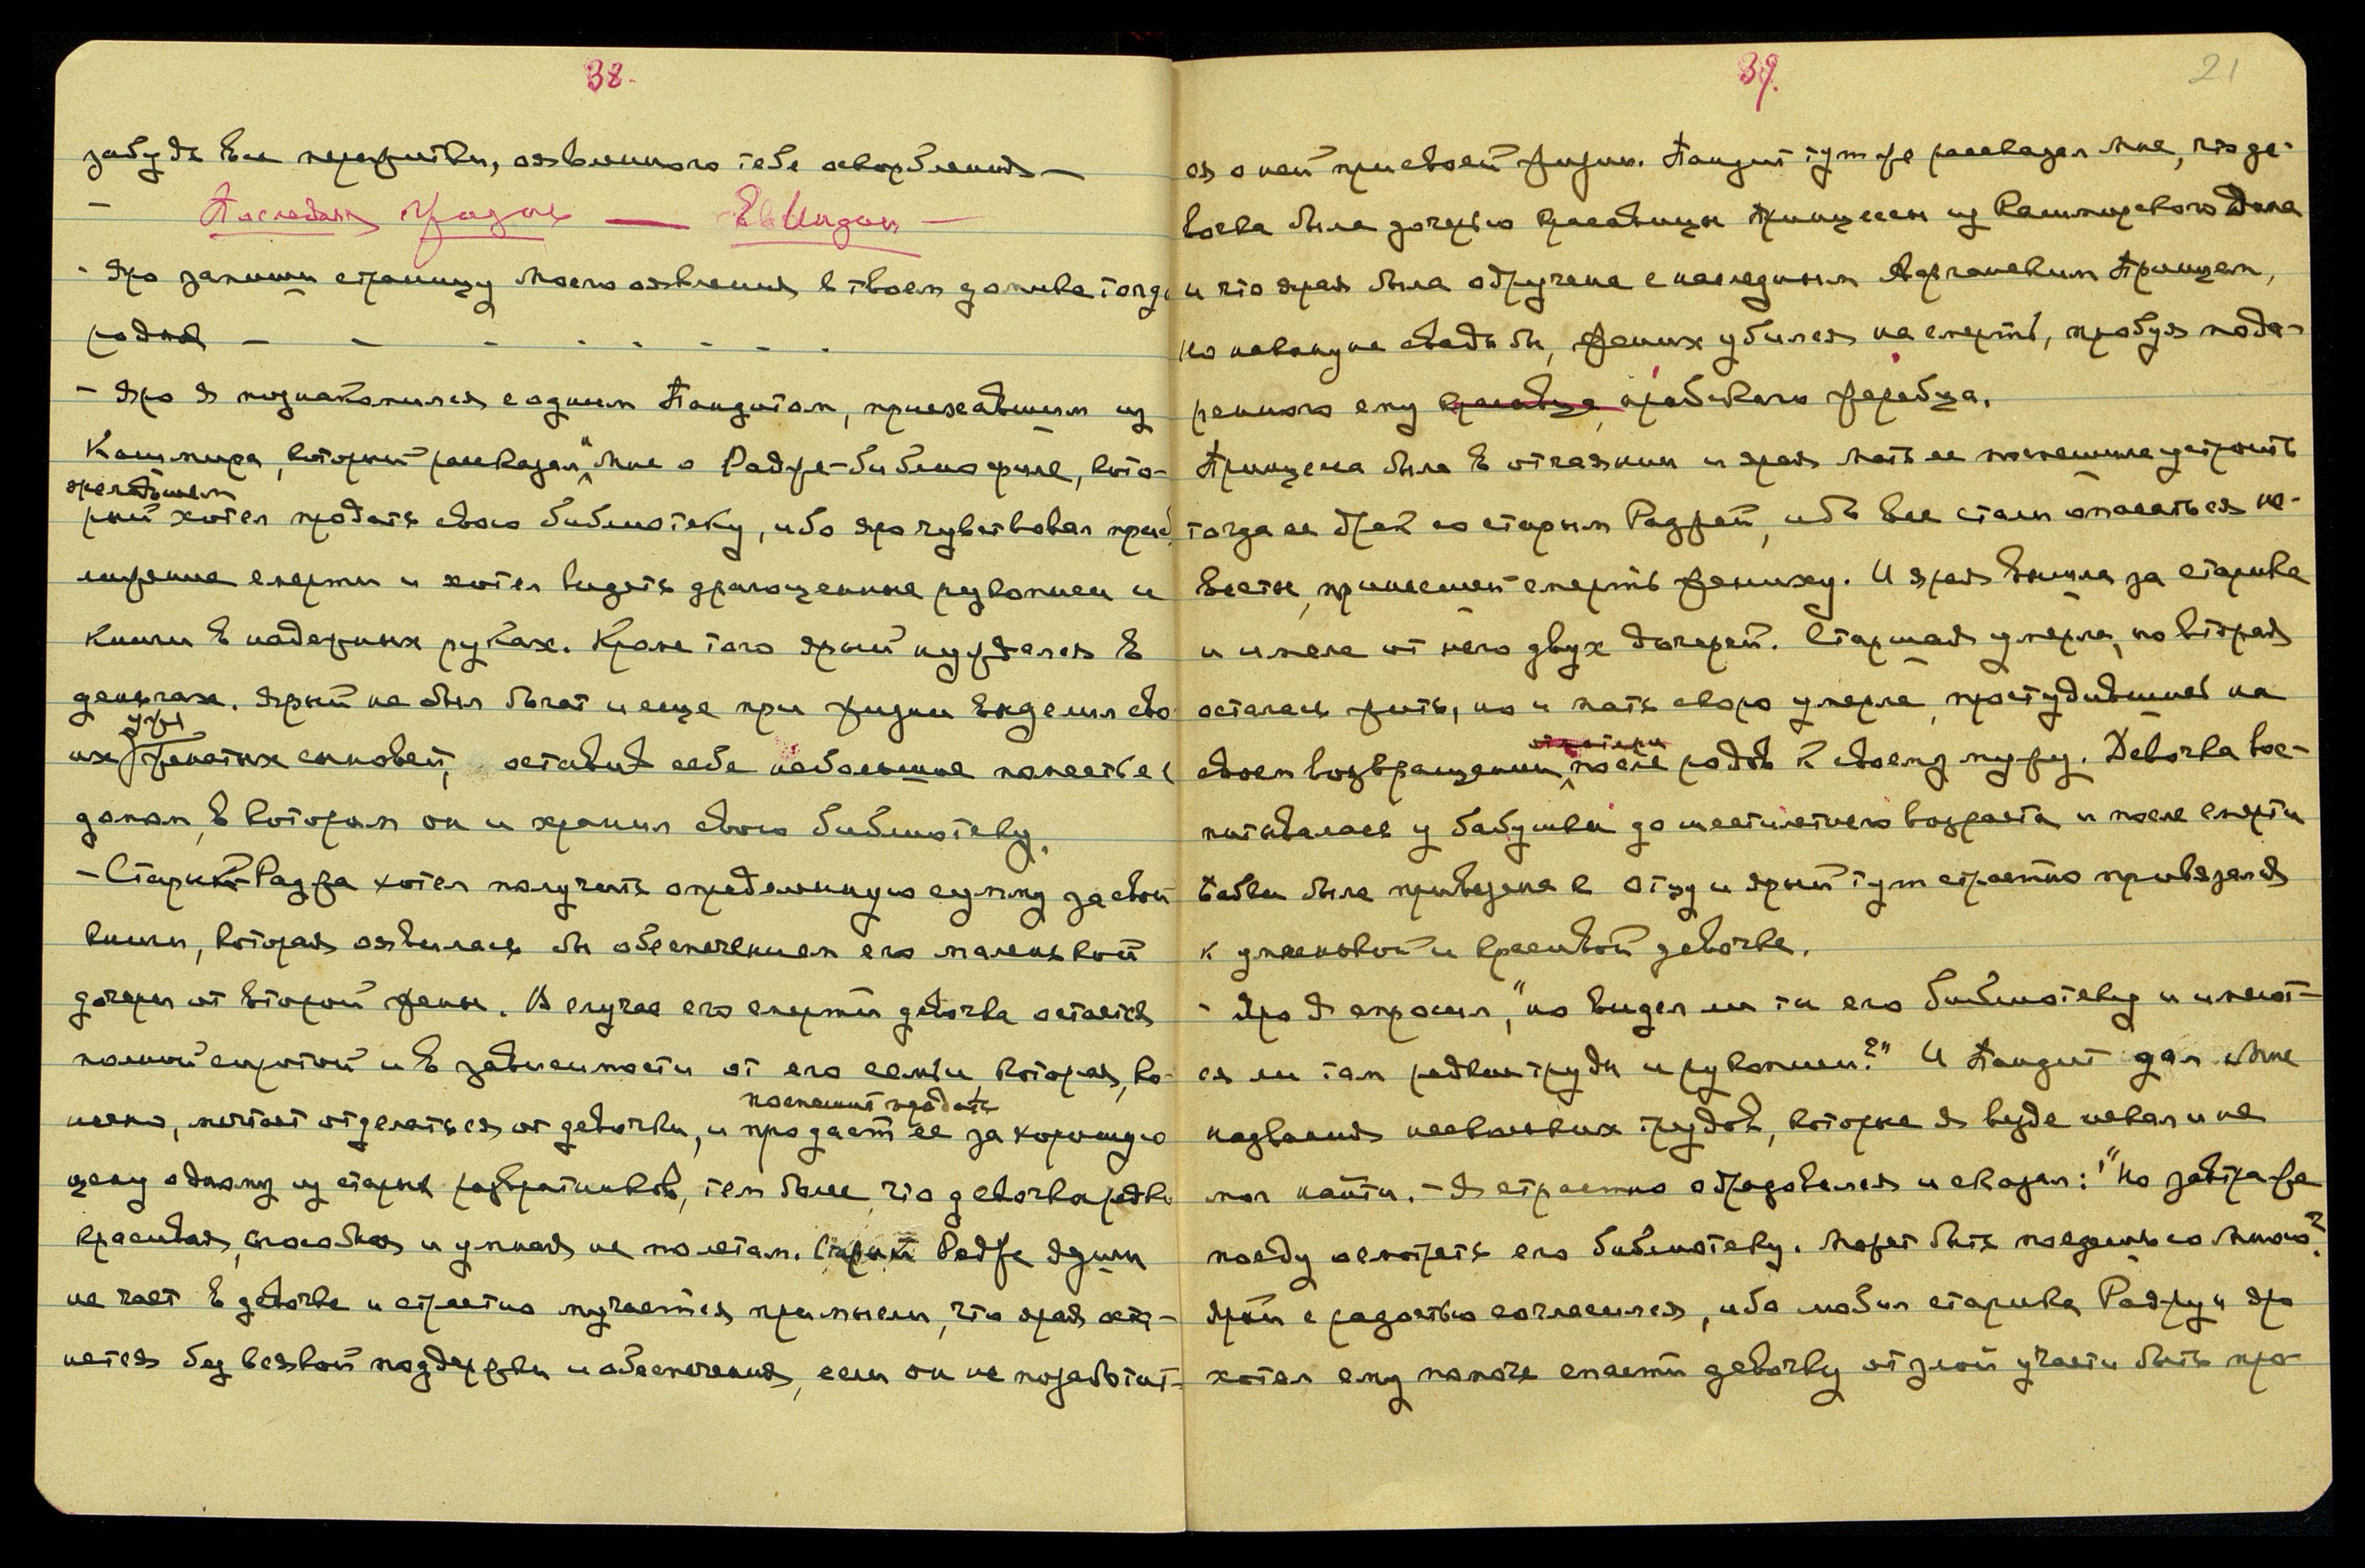 38.
забудь все пережитки, оявленного тебе оскорбления —
— Последняя Жизнь — в Индии —
- Яро запиши страницу Моего оявления в твоем
родная — — — . . . . .
- Яро Я познакомился с одним Пандитом, приехавшим из
Кашмира, который рассказал, "Мне о Радже-библиофиле, кото-
престарелым
рый хотел продать свою библиотеку, ибо яро чувствовал приб
лижение смерти и хотел видеть драгоценные рукописи и
книги в надежных руках. Кроме того ярый нуждался в
деньгах. Ярый не был богат и еще при жизни выделил сво
уже
их женатых сыновей, оставив себе небольшое поместье с
домом, в котором он и хранил свою библиотеку.
- Старик Раджа хотел получить определенную сумму за свои
книги, которая оявилась бы обеспечением его маленькой
дочери от второй жены. В случае его смерти девочка остается
полной сиротой и в зависимости от его семьи, которая, ко-
поспешит продать
нечно, мечтает отделаться от девочки, и продаст ее за хорошую
цену одному из старых развратников, тем более, что девочка редко
красивая, способная и умная не по летам. Старик Раджа души
не чает в девочке и страстно мучается при мысли, что ярая оста-
нется без всякой поддержки и обеспечения, если он не позаботит-
39.
21
ся о ней при своей жизни. Пандит тут же рассказал Мне, что де-
вочка была дочерью красавицы принцессы из Кашмирского Дома
и что ярая была обручена с наследным Афганским Принцем,
но накануне свадьбы, жених убился на смерть, пробуя пода-
ренного ему красавца арабского жеребца.
Принцесса была в отчаянии и ярая мать ее поспешила устроить
тогда ее брак со старым Раджей, ибо все стали опасаться не-
весты, принесшей смерть жениху. И ярая вышла за старика
и имела от него двух дочерей. Старшая умерла, но вторая
осталась жить, но и мать скоро умерла, простудившись на
своем возвращении, после родов к своему мужу. Девочка вос-
питывалась у бабушки до шестилетнего возраста и после смерти
бабки была привезена к отцу и ярый тут страстно привязался
к умненькой и красивой девочке.
- Яро Я спросил, "но видел ли ты его библиотеку и имеют-
ся ли там редкие труды и рукописи?" И Пандит дал Мне
названия нескольких трудов, которые Я везде искал и не
мог найти. - Я страстно обрадовался и сказал: "Но завтра же
поеду осмотреть его библиотеку. Может быть поедешь со Мною?
Ярый с радостью согласился, ибо любил старика Раджу и яро
хотел ему помочь спасти девочку от злой участи быть про-